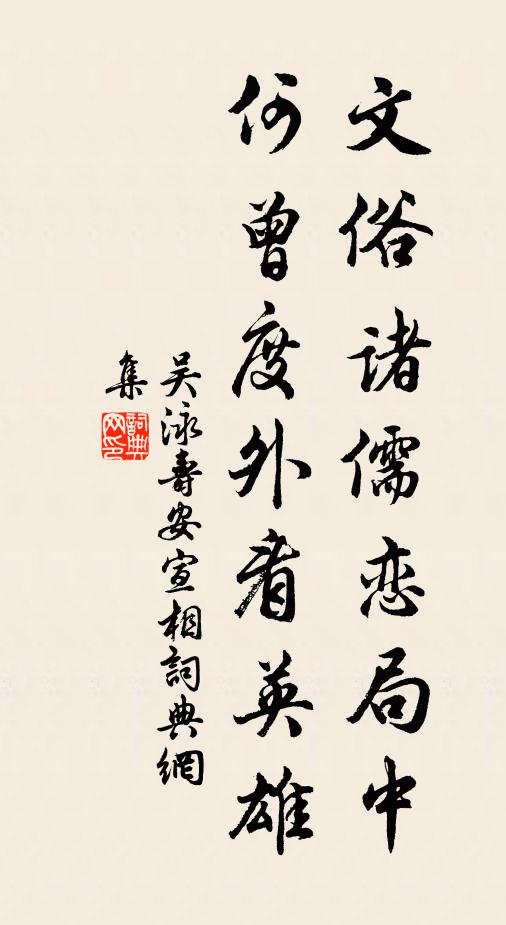 文俗诸儒恋局中
何曾度外看英雄
吴泳寿安宣相詞典網
集
詞典
网印